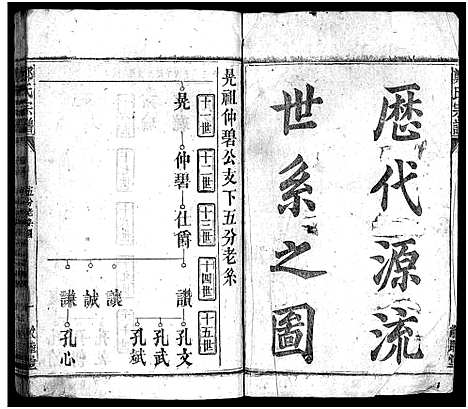 歷代源流
世系之圖
晃祖仲碧公支下五分老系
十一世 十二世 十三世 十四世 十五世
晃 仲碧 仕爵 讚 孔文
孔武
孔斌
議
誠
謙 孔心
鄭氏宗譜